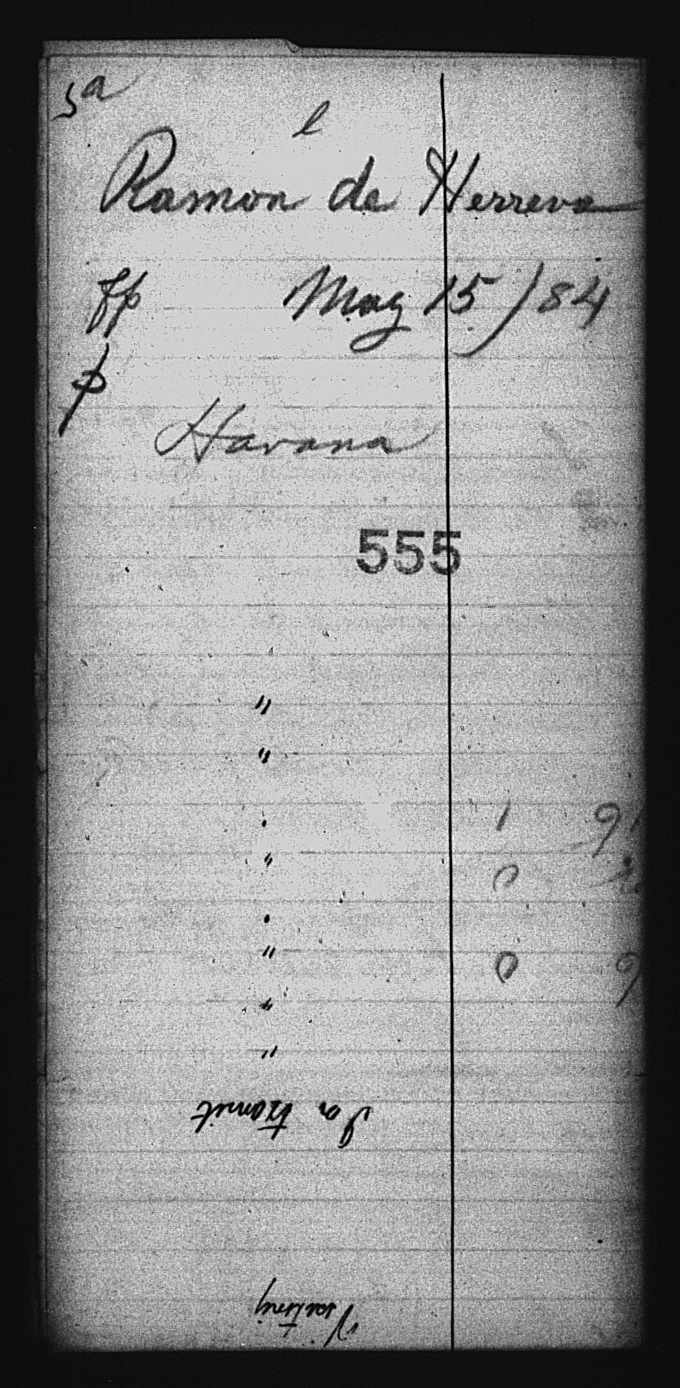 5a
l
Ramon de Herrera
fp May 15/84
p
Havana
555
"
"
"
1 91
0
"
0 9
"
"
In transit
Visiting